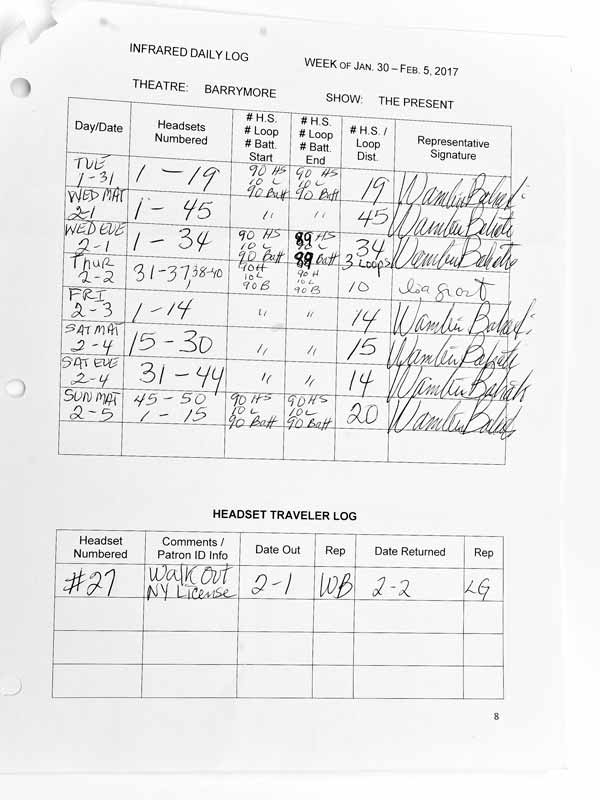 INFRARED DAILY LOG WEEK OF JAN. 30 – FEB. 5, 2017
THEATRE: BARRYMORE SHOW: THE PRESENT
Day/Date Headsets Numbered # H.S. # Loop # Batt. Start # H.S. # Loop # Batt. End # H.S. / Loop Dist. Representative Signature
TUE 1-31 1 – 19 90 HS 10 L 90 Batt 90 HS 10 L 90 Batt 19
WED MAT 2-1 1 – 45 " " 45
WED EVE 2-1 1 – 34 90 HS 10 L 90 Batt 89 HS 10 L 89 Batt 34 3 Loops
THUR 2-2 31-37, 38-40 90 H 10 L 90 B 90 H 10 L 90 B 10
FRI 2-3 1-14 " " 14
SAT MAT 2-4 15-30 " " 15
SAT EVE 2-4 31-44 " " 14
SUN MAT 2-5 45-50 1-15 90 HS 10 L 90 Batt 90 HS 10 L 90 Batt 20
HEADSET TRAVELER LOG
Headset Numbered Comments / Patron ID Info Date Out Rep Date Returned Rep
#27 Walk Out NY License 2-1 WB 2-2 LG
8